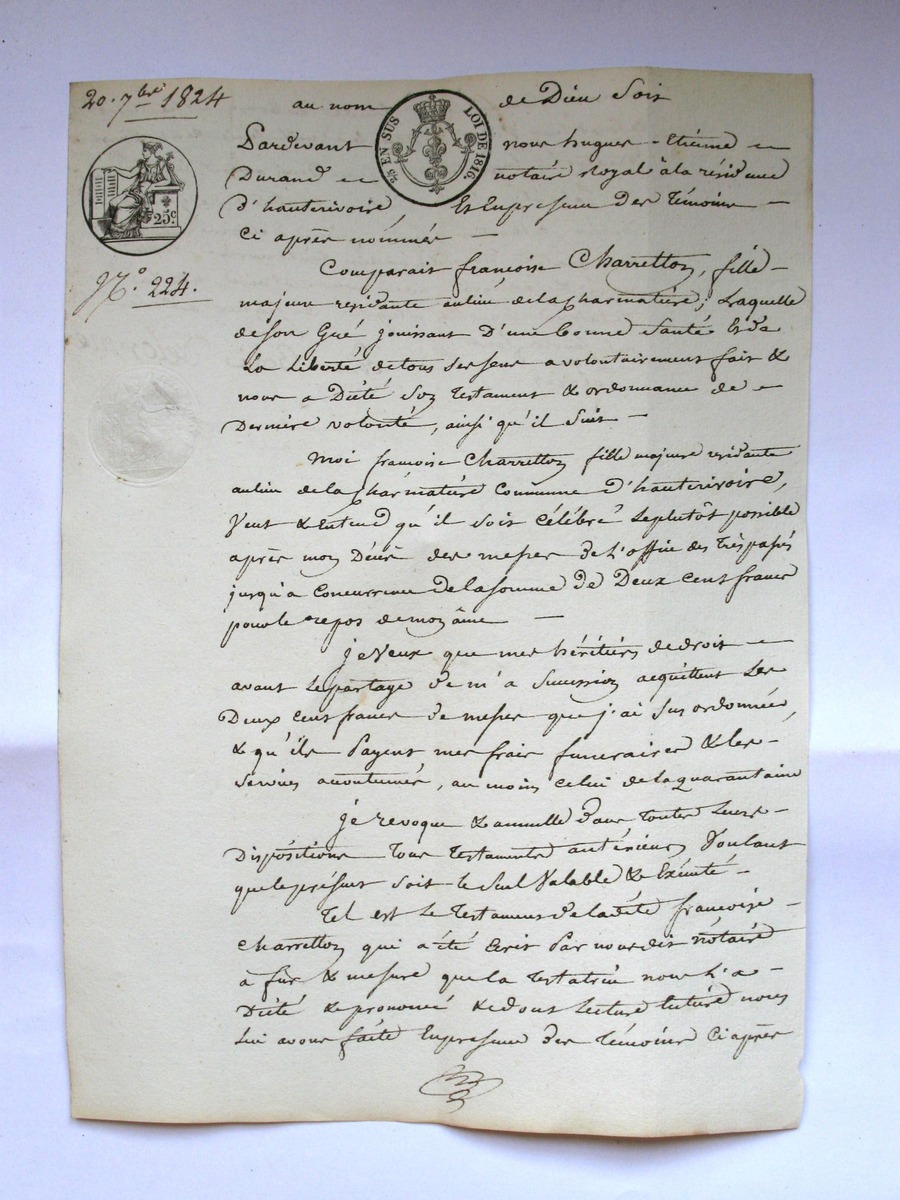 20. 7bre 1824
au nom de Dieu Soit
25 EN SUS
LOI DE 1816.
25c.
No. 224.
Pardevant nous hugues - Etienne
Durand notaire Royal à la résidence
d'hauterivoire Et En presence des Témoins
Ci après nommés
Comparait françoise Charretton, fille
majeure residante au lieu de la Charmatière; Laquelle
de son Gré jouissant D'une bonne Santé Et de
La Liberté de tous ses sens a volontairement fait &
nous a Dicté Son Testament & ordonnance de
Dernière volonté, ainsi qu'il Suit
Moi francoise Charretton fille majeure residante
au lieu de la Charmatière Commune D'hauterivoire,
Veut & Entend qu'il soit Célébré Le plutôt possible
après mon Décès des messes de L'office des Trépassés
jusqu'a Concurrence de la somme de Deux cent francs
pour le repos de mon âme
je Veux que mes héritiers de droit
avant Le partage de m'a Succession acquittent Les
Deux cent francs de messes que j'ai Sus ordonnées,
& qu'ils Payent mes frais funeraires & les
Services accoutumés, au moins Celui de la quarantaine
je revoque & annulle dans Toutes Leurs
Dispositions Tous Testaments antérieurs Voulant
que le présent soit le Seul Valable & Exécuté
Tel est Le Testament de la dite françoise
Charretton qui a été Ecrit Par nous dit nôtaire
à fûr & mesure que La Testatrice nous L'a
Dicté & prononcé & dont Lecture Entière nous
Lui avons faite En presence des Témoins Ci après